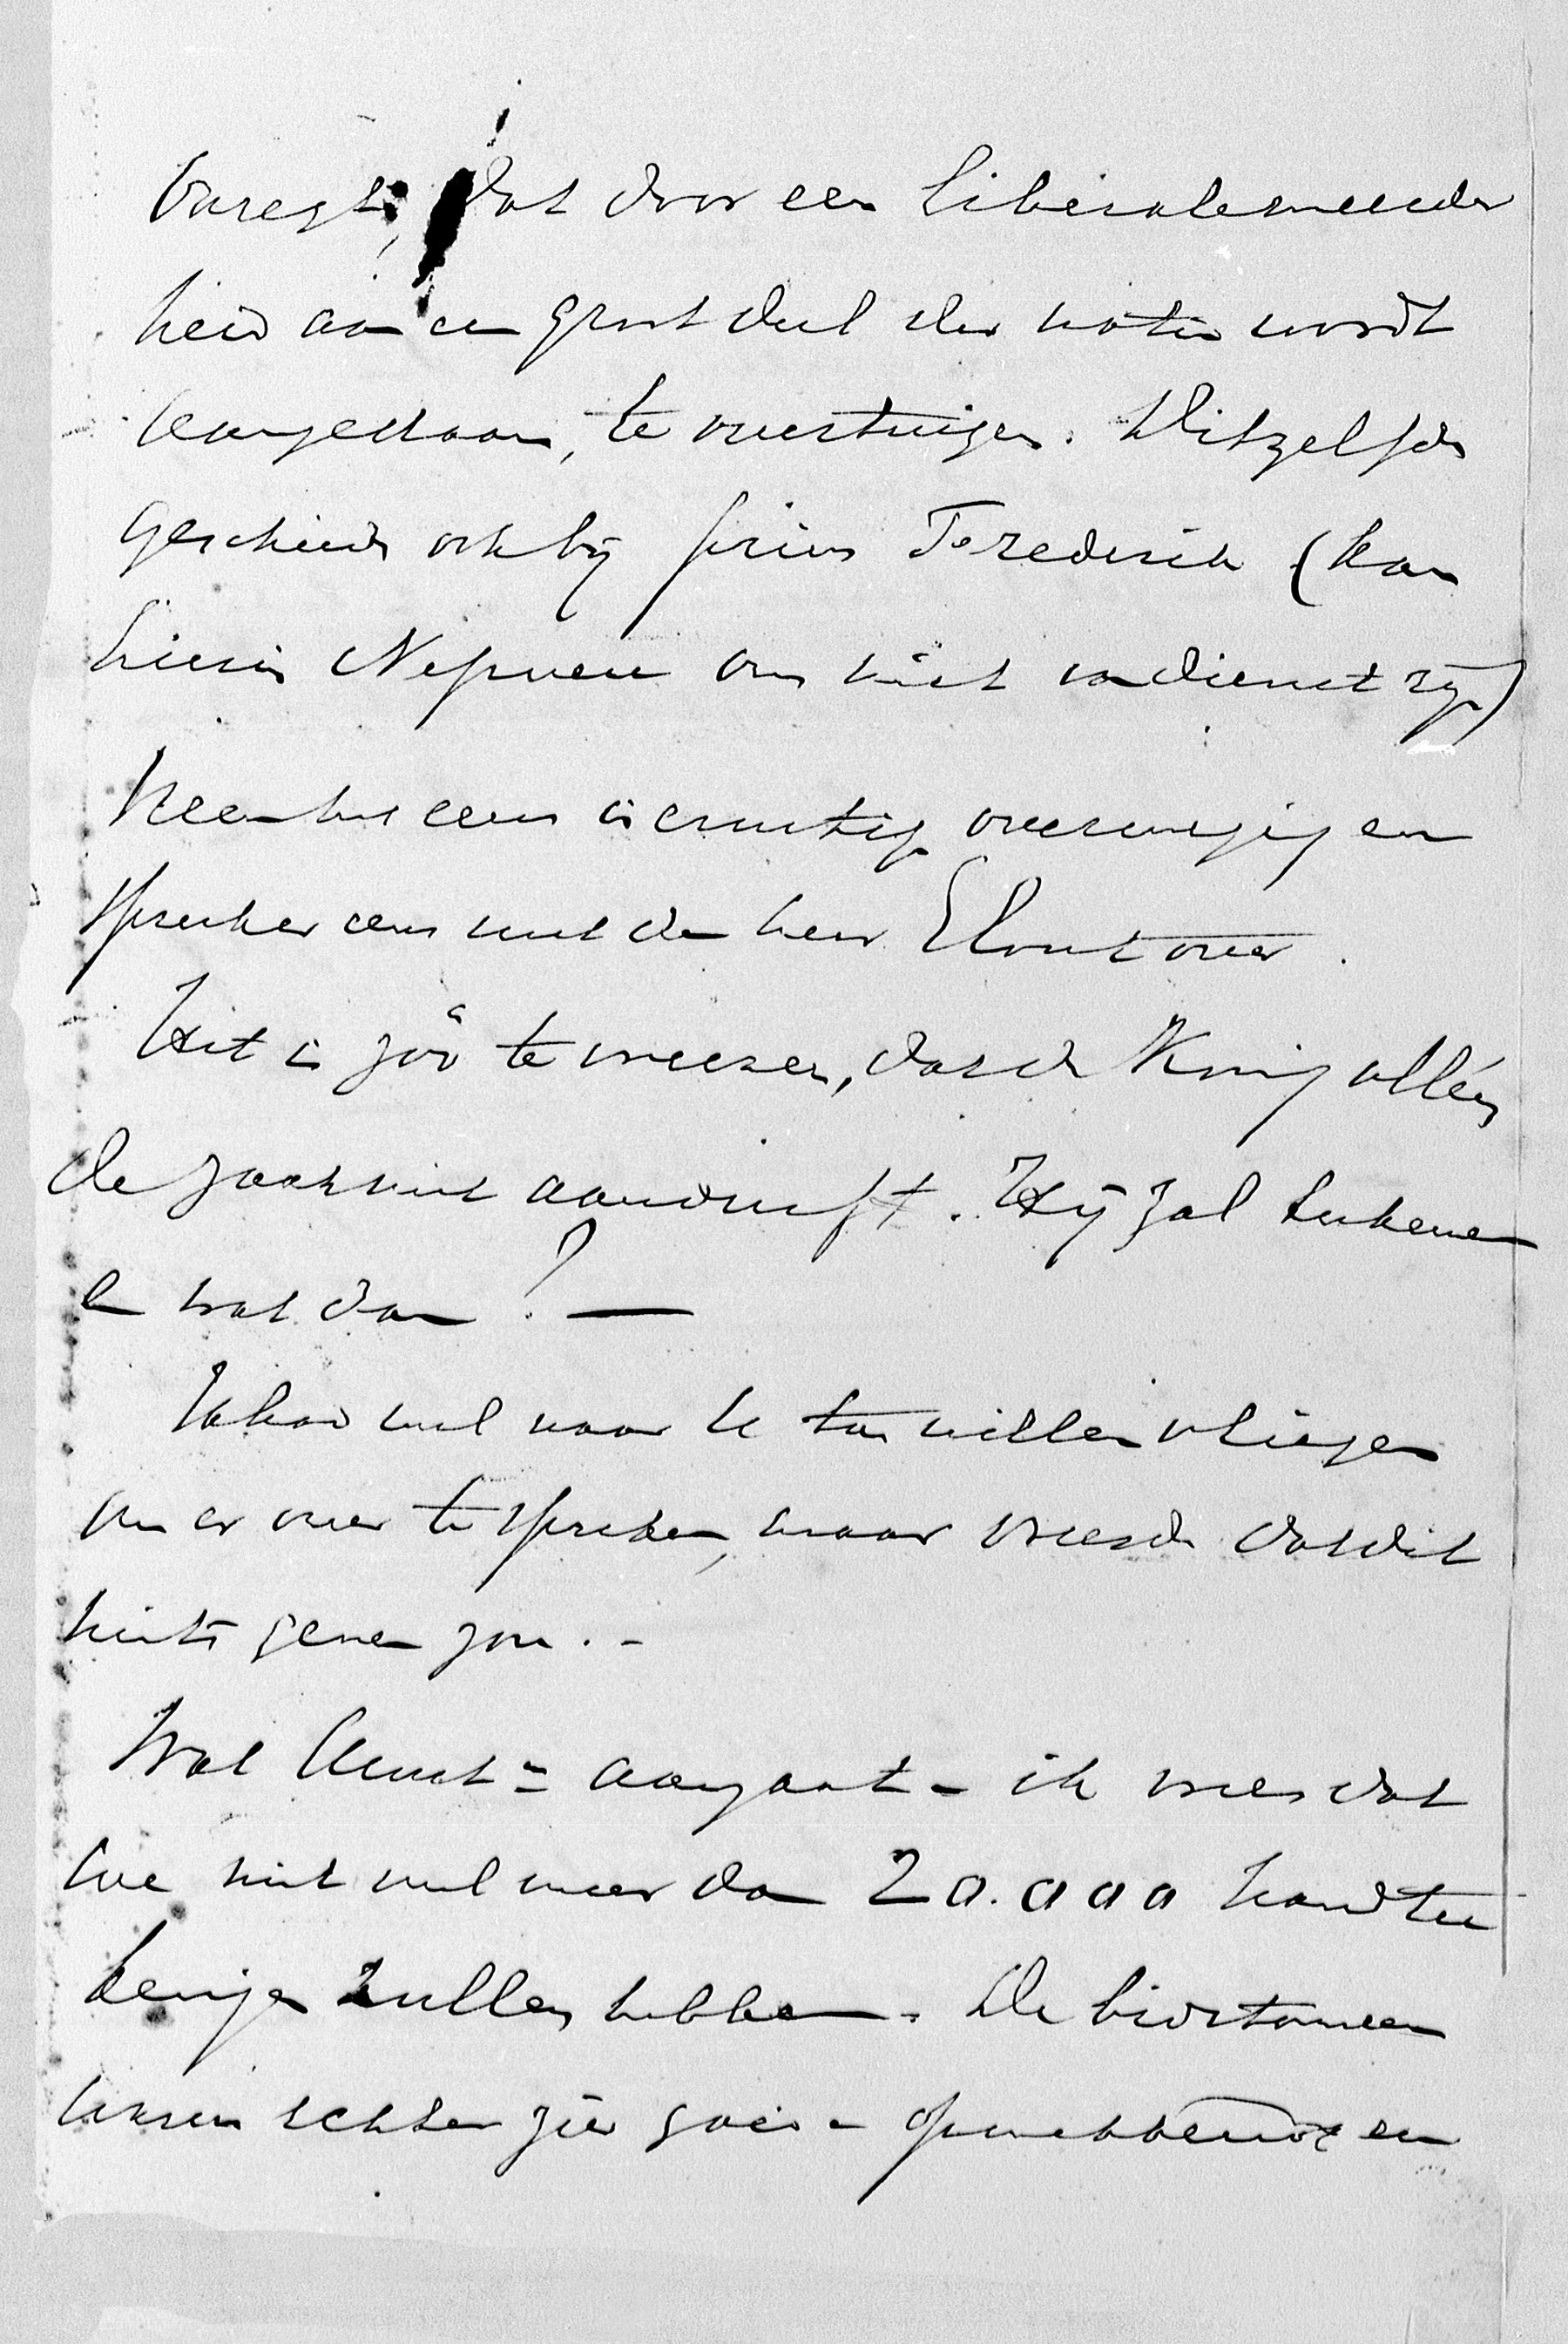 Onregt, dat door een liberale meerder
heid aan een groot deel der natie wordt
aangedaan, te overtuigen. Ditzelfde
geschiede ook bij prins Frederik (kan
hierin Nepveu ons niet van dienst zijn)
Neem het eens in ernstige overweging en
spreek er eens met den heer Elout over.
Het is zóó te vreezen, dat de Koning alléén
de zaak niet aandurft. Hij zal teekenen
en wat dan? —
Ik had wel naar U toe willen vliegen
om er over te spreken, maar vreesde dat dit
niets geven zou. -
Wat Aemst= aangaat - ik vrees dat
we niet veel meer dan 20.000 handtee
keningen zullen hebben. De bidstonden
waren echter zeer goed - opwekkend en